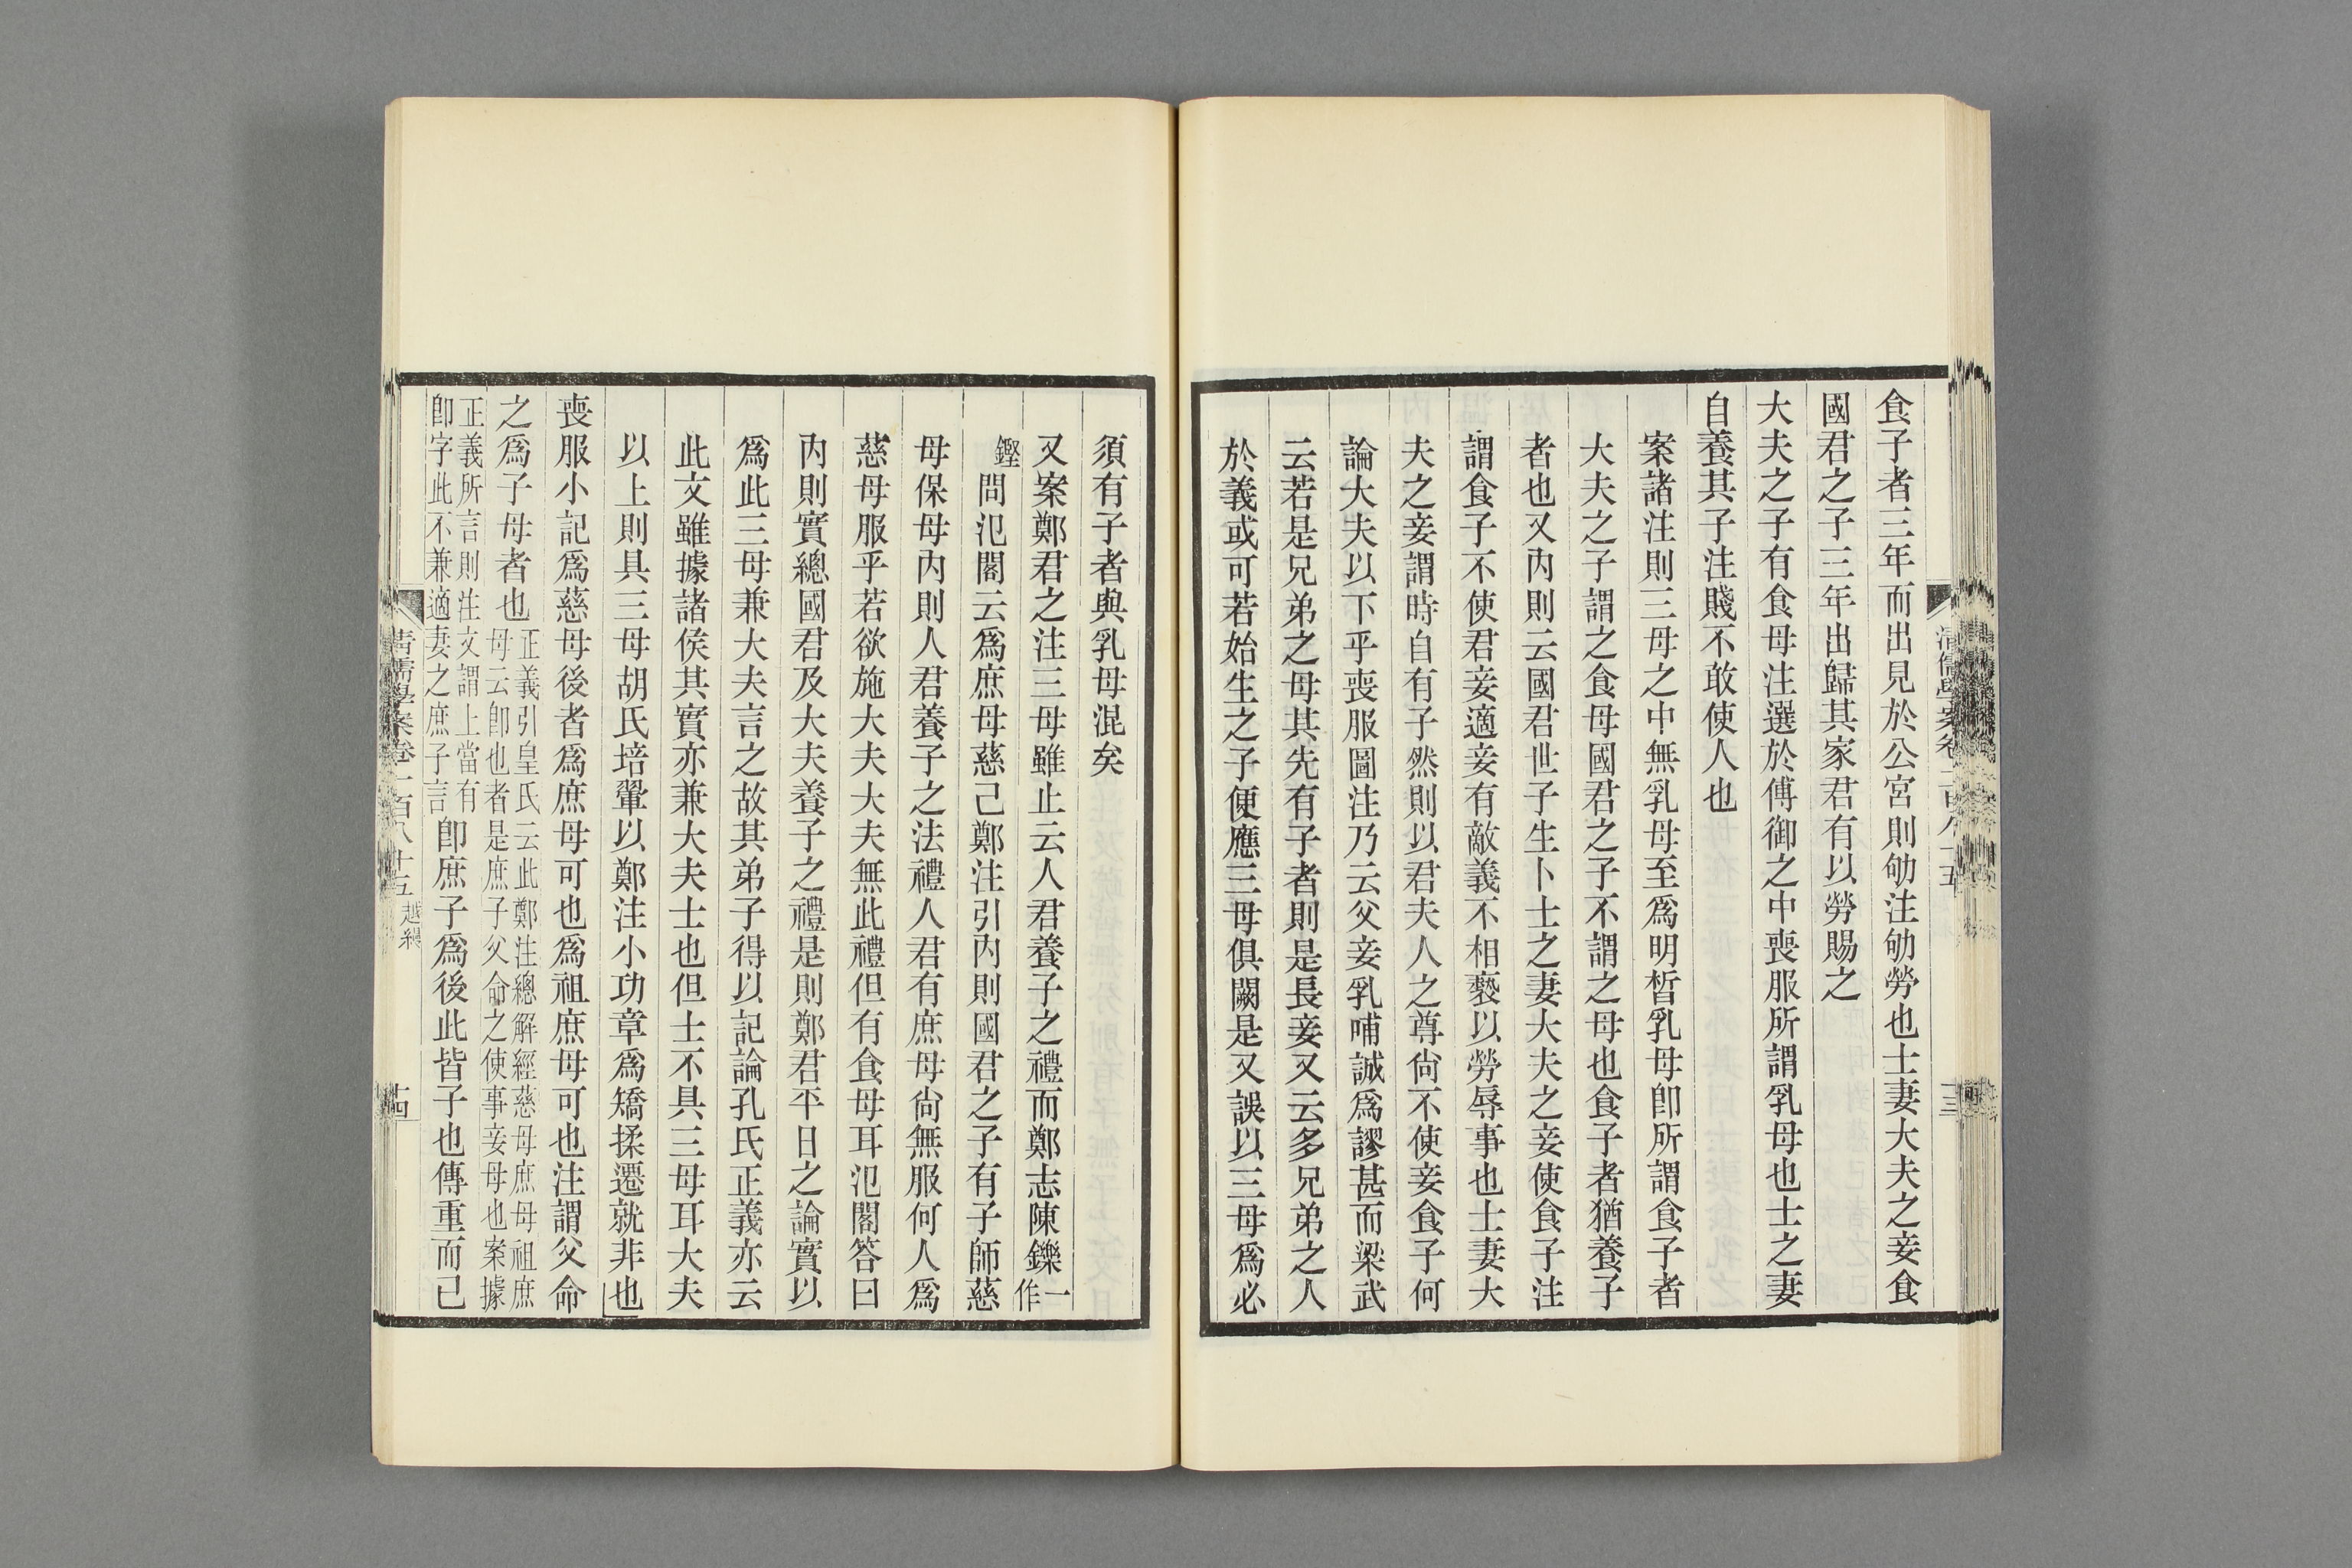 食子者三年而出見於公宮則劬注劬勞也士妻大夫之妾食
國君之子三年出歸其家君有以勞賜之
大夫之子有食母注選於傅御之中喪服所謂乳母也士之妻
自養其子注賤不敢使人也
案諸注則三母之中無乳母至爲明晳乳母卽所謂食子者
大夫之子謂之食母國君之子不謂之母也食子者猶養子
者也又內則云國君世子生卜士之妻大夫之妾使食子注
謂食子不使君妾適妾有敵義不相褻以勞辱事也士妻大
夫之妾謂時自有子然則以君夫人之尊尙不使妾食子何
論大夫以下乎喪服圖注乃云父妾乳哺誠爲謬甚而梁武
云若是兄弟之母其先有子者則是長妾又云多兄弟之人
於義或可若始生之子便應三母俱闕是又誤以三母爲必
須有子者與乳母混矣
又案鄭君之注三母雖止云人君養子之禮而鄭志陳鑠一作
鏗問氾閣云爲庶母慈己鄭注引內則國君之子有子師慈
母保母內則人君養子之法禮人君有庶母尙無服何人爲
慈母服乎若欲施大夫大夫無此禮但有食母耳氾閣答曰
內則實總國君及大夫養子之禮是則鄭君平日之論實以
爲此三母兼大夫言之故其弟子得以記論孔氏正義亦云
此文雖據諸侯其實亦兼大夫士也但士不具三母耳大夫
以上則具三母胡氏培翬以鄭注小功章爲矯揉遷就非也
喪服小記爲慈母後者爲庶母可也爲祖庶母可也注謂父命
之爲子母者也正義引皇氏云此鄭注總解經慈母庶母祖庶
母云卽也者是庶子父命之使事妾母也案據
正義所言則注文謂上當有
卽字此不兼適妻之庶子言卽庶子爲後此皆子也傳重而已
清儒學案卷一百八十五 越縵
十四